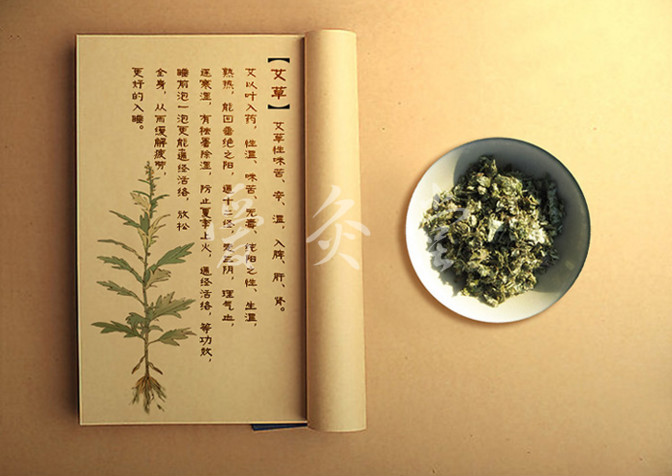 【艾草】艾草性味苦、辛、温，入脾、肝、肾。
艾以叶入药，性温、味苦、无毒、纯阳之性、生温，
熟热，能回垂绝之阳，通十二经、走三阴，理气血，
逐寒湿，有独暑除湿，防止夏季上火，通经活络，等功效，
睡前泡一泡更能通经活络，放松
全身，从而缓解疲劳，
更好的入睡。
爱灸堂